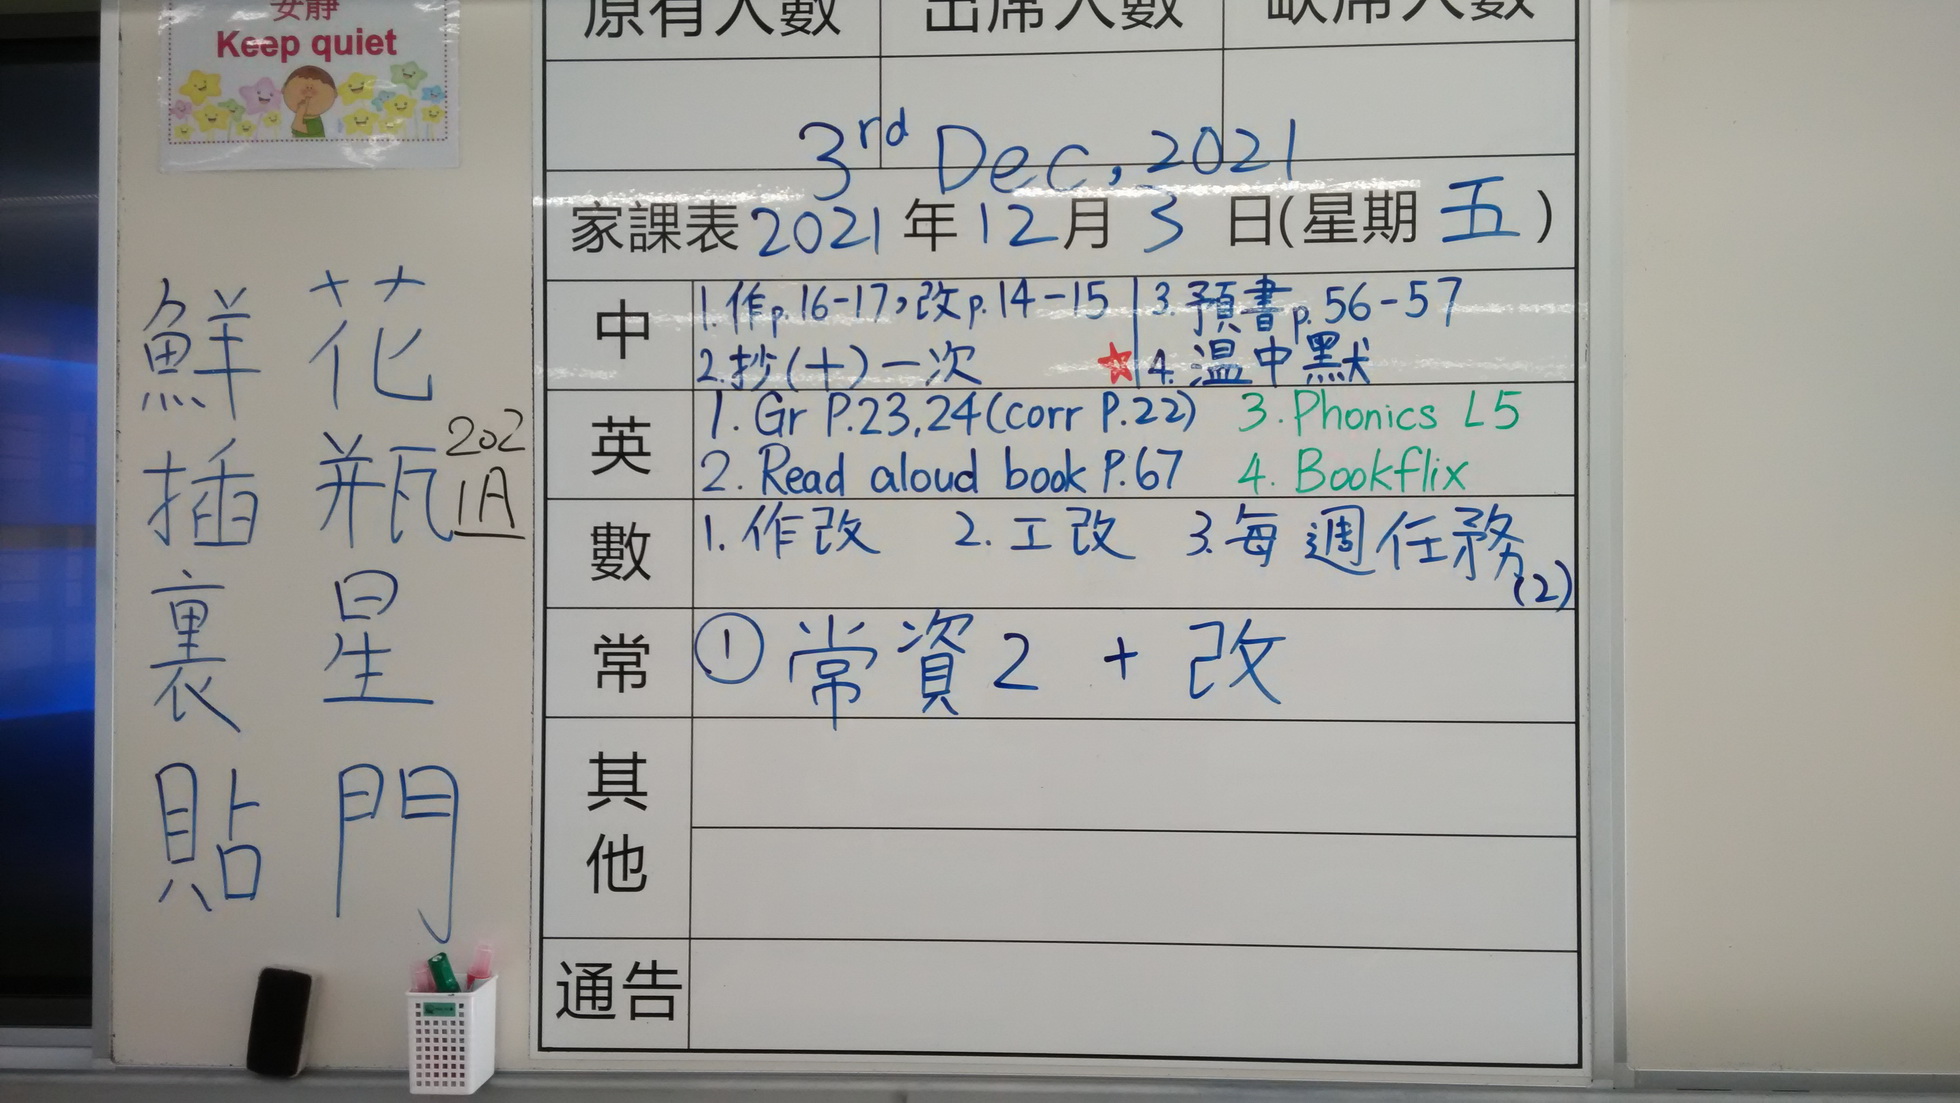 安靜
Keep quiet
原有人數 出席人數 缺席人數
3rd Dec, 2021
家課表 2021 年 12 月 3 日(星期 五)
中
1. 作p.16-17,改p.14-15
2. 抄(十)一次
3. 預書p.56-57
★4. 溫中默
英
1. Gr P.23,24(corr P.22)
2. Read aloud book P.67
3. Phonics L5
4. Bookflix
數
1. 作改 2. 工改 3. 每週任務(2)
常
① 常資2 + 改
其他
通告
鮮 花
插 瓶
裏 星
貼 門
202
1A